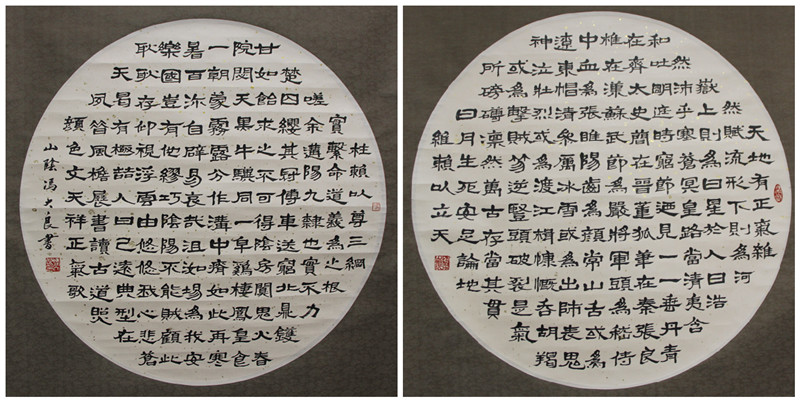 天地有正氣雜
然賦流形下則為河
嶽上則為日星於人曰浩
然沛乎塞蒼冥皇路當清夷含
和吐明庭時窮節迺見一一垂丹青
在齊太史簡在晉董狐筆在秦張良
椎在漢蘇武節為嚴將軍頭為嵇侍
中血為張睢陽齒為顏常山舌或為
遼東帽清操厲冰雪或為出師表鬼
神泣壯烈或為渡江楫慷慨吞胡羯
或為擊賊笏逆豎頭破裂是氣
所磅礴凜然萬古存當其貫
日月生死安足論地
維賴以立天
柱賴以尊三綱
實繫命道義為之根
嗟余遘陽九隸也實不力
楚囚纓其冠傳車送窮北鼎鑊
甘如飴求之不可得陰房闃鬼火春
院閟天黑牛驥同一皁雞棲鳳皇食
一朝蒙霧露分作溝中瘠如此再寒
暑百沴自辟易哀哉沮洳場為我安
樂國豈有他繆巧陰陽不能賊顧此
耿耿存仰視浮雲白悠悠我心悲蒼
天曷有極喆人日已遠典型在
夙昔風檐展書讀古道照
顏色文天祥正氣歌
山陰馮大良書